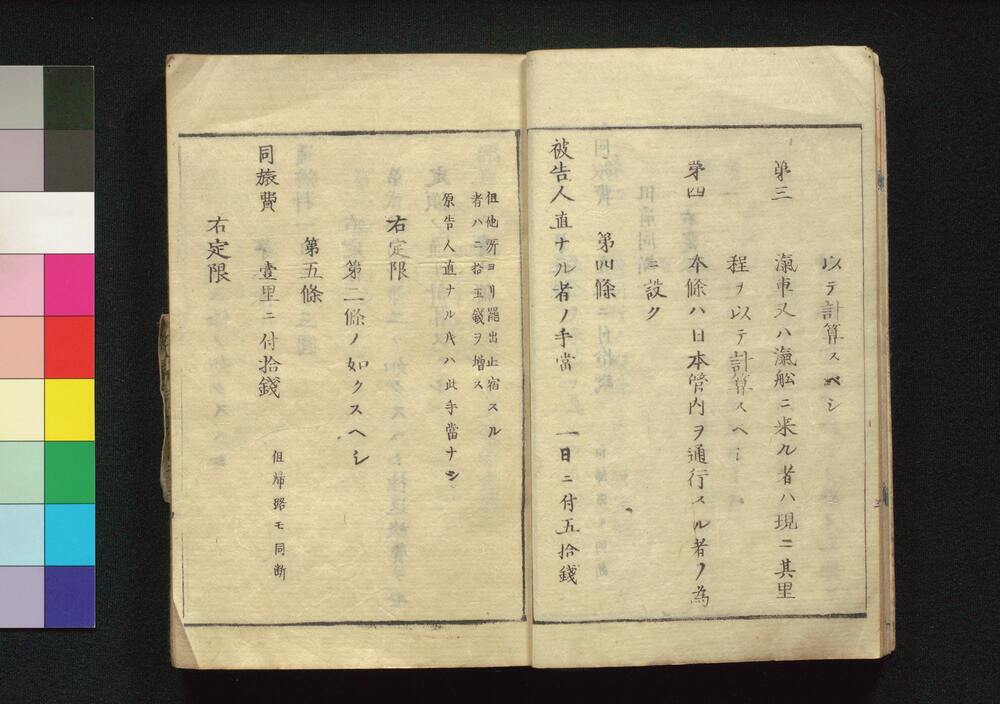 以テ計算スベシ
第三 滊車又ハ滊舩ニ乗ル者ハ現ニ其里
程ヲ以テ計算スヘシ
第四 本條ハ日本管内ヲ通行スル者ノ為
ニ設ク
第四條
被告人直ナル者ノ手當 一日ニ付五拾錢
但他所ヨリ罷出止宿スル
者ハ二拾五錢ヲ増ス
原告人直ナル氏ハ此手當ナシ
右定限
第二條ノ如クスヘシ
第五條
同旅費 壹里ニ付拾錢 但帰路モ同断
右定限